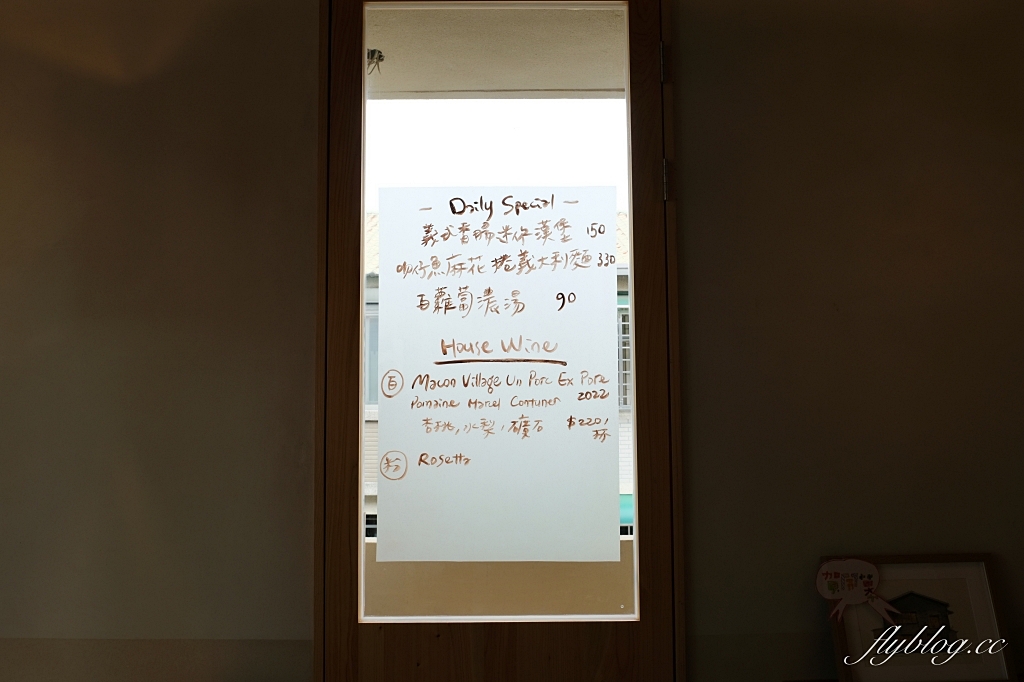 — Daily Special —
義式香腸迷你漢堡 150
吻仔魚麻花捲義大利麵 330
白蘿蔔濃湯 90
House Wine
白 Macon Village Un Porc Ex Pore
Domaine Marcel Couturier 2022
杏桃,水梨,礦石 $220/杯
粉 Rosetta
賀開幕
flyblog.cc